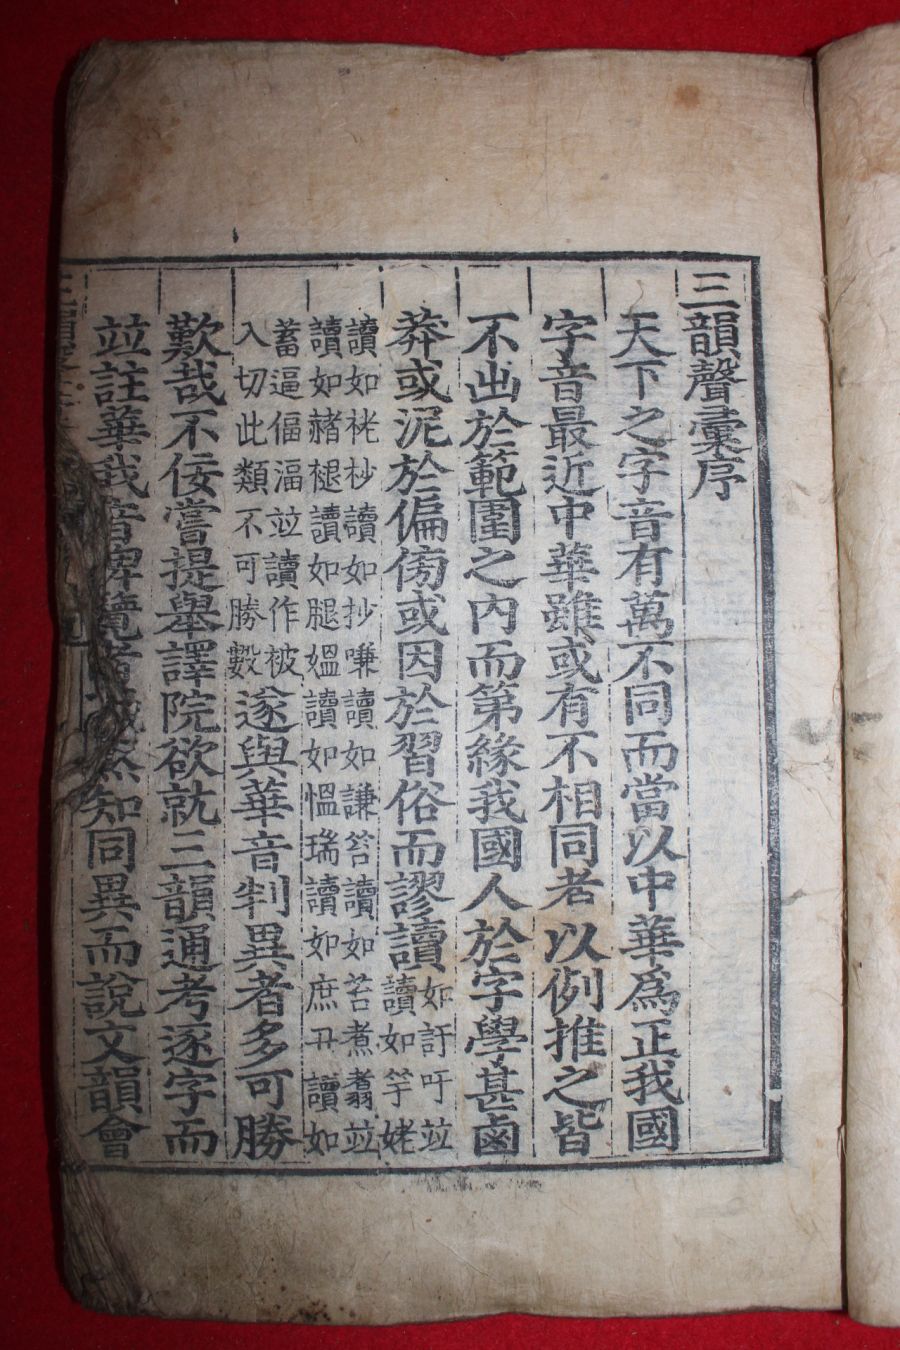 三韻聲彙序
天下之字音有萬不同而當以中華爲正我國
字音最近中華雖或有不相同者以例推之皆
不出於範圍之內而第緣我國人於字學甚鹵
莽或泥於偏傍或因於習俗而謬讀如訏吁竝
讀如竽姥
讀如栳杪讀如抄嗛讀如謙筨讀如筶煮翥竝
讀如赭褪讀如腿媼讀如慍瑞讀如庶丑讀如
蓄逼偪湢竝讀作被
入切此類不可勝數遂與華音判異者多可勝
歎哉不佞嘗提舉譯院欲就三韻通考逐字而
竝註華我音俾覽者咸知同異而說文韻會